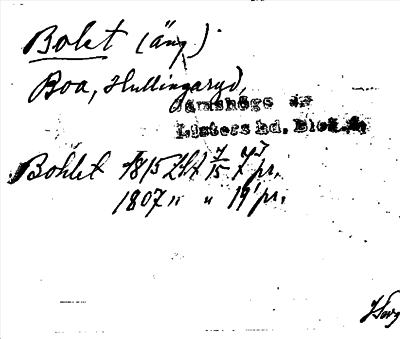 Bolet (äng).
Boa, Hullingaryd,
Jämshögs sn
Listers hd. Blek. l.
Bohlet 1815 Lht 7/15 7 pr.
1807 " " 19 pr.